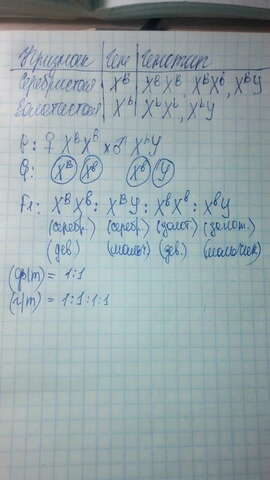 Признак | Ген | Генотип
Серебристая | Xᴮ | XᴮXᴮ, XᴮXᵇ, XᴮY
Золотистая | Xᵇ | XᵇXᵇ, XᵇY
P: ♀ XᴮXᵇ x ♂ XᵇY
G: Xᴮ Xᵇ Xᵇ Y
F₁: XᴮXᵇ : XᴮY : XᵇXᵇ : XᵇY
(серебр.) (серебр.) (золот.) (золот.)
(дев.) (мальч.) (дев.) (мальчик)
(ф/т) = 1:1
(г/т) = 1:1:1:1